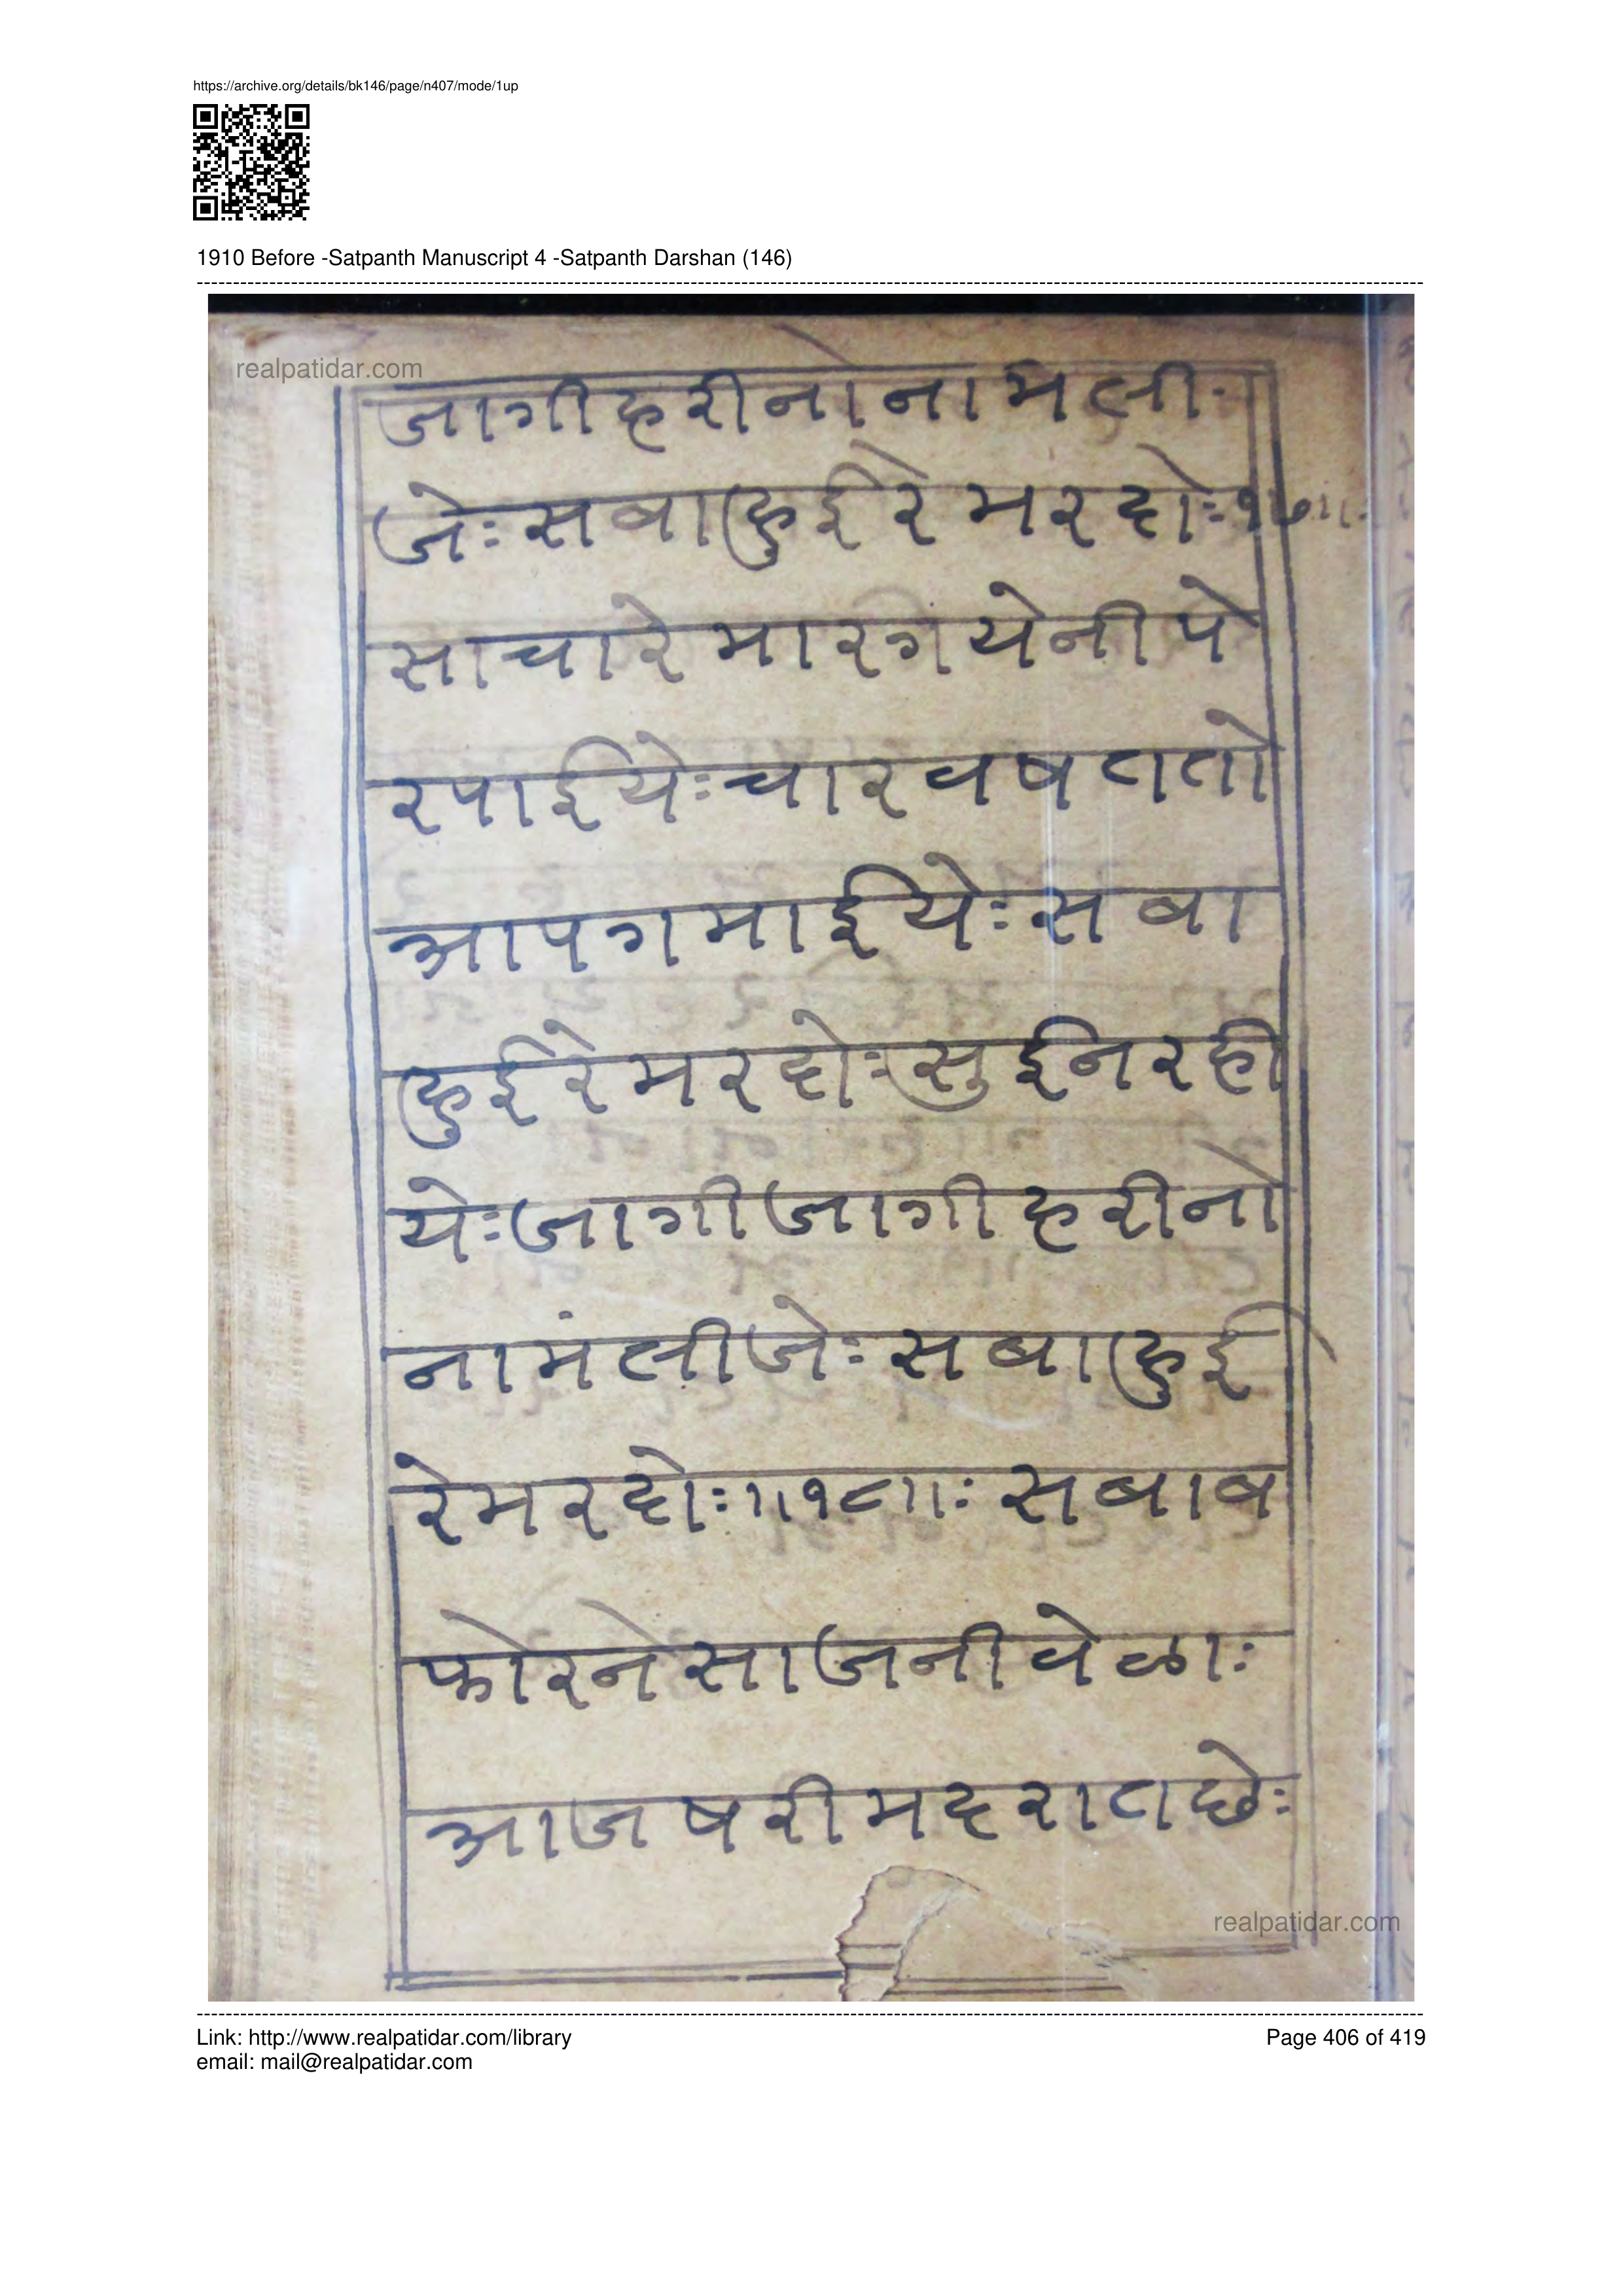 https://archive.org/details/bk146/page/n407/mode/1up
1910 Before -Satpanth Manuscript 4 -Satpanth Darshan (146)
realpatidar.com
जागीहरीनोनामली
जेः सबाहुईरेमरदोः १७॥
साचारेमारगयेनीपे
रपाईयेः चारवषततो
आपगमाईयेः सबा
हुईरेमरदोः सुईनरही
येः जागीजागीहरीनो
नामंलीजेः सबाहुई
रेमरदोः ॥१८॥ः सबाब
फोरनेसाजनीवेळाः
आजषरीमहरातछेः
realpatidar.com
Link: http://www.realpatidar.com/library
Page 406 of 419
email: mail@realpatidar.com